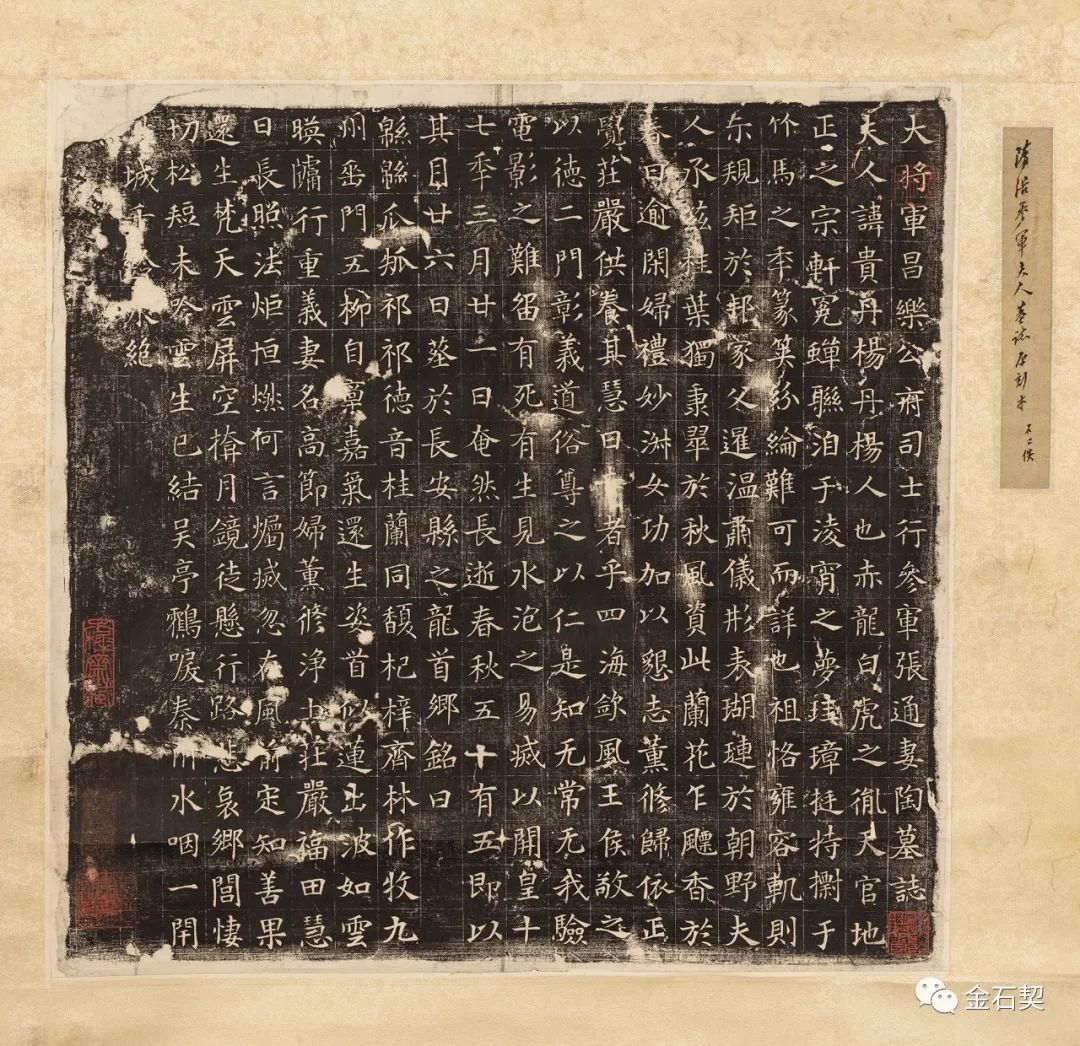 大將軍昌樂公府司士行參軍張通妻陶墓誌
夫人諱貴丹楊丹楊人也赤龍白虎之胤天官地
正之宗軒冕蟬聯洎于淩霄之夢珪璋挺特擲于
竹馬之季篆箕紛綸難可而詳也祖恪雍容軌則
尔規矩於邦家父暹温肅儀形表瑚璉於朝野夫
人承茲桂葉獨秉翠於秋風資此蘭花乍飃香於
春日逾閑婦禮妙洲女功加以懇志薰脩歸依正
覺莊嚴供養其慧日者乎四海欽風王侯敬之
以德二門彰義道俗尊之以仁是知无常无我驗
電影之難留有死有生見水泡之易㓕以開皇十
七年三月廿一日奄然長逝春秋五十有五即以
其月廿六日葬於長安縣之龍首鄉銘曰
緜緜瓜瓞祁祁德音桂蘭同馥杞梓齊林作牧九
州垂門五柳自稟嘉氣還生姿首似蓮出波如雲
暎牖行重義妻名高節婦薰脩淨土莊嚴福田慧
日長照法炬恒燃何言燭㓕忽在風前定知善果
還生梵天雲屏空掩月鏡徒懸行路悲哀鄉閭悽
切松短未吟雲生已結吴亭鶴唳秦川水咽一閇
城千令永絶
隋張參軍夫人墓誌原刻本
不二僕
金石契